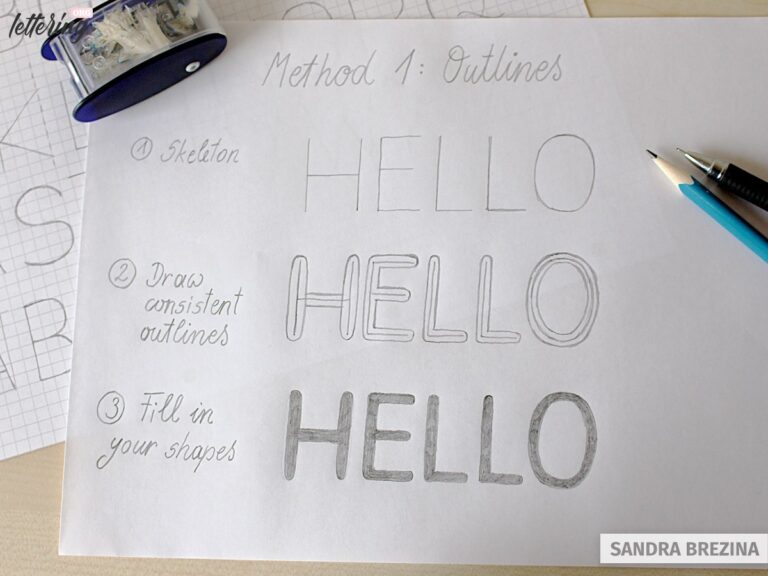 lettering
.ORG
Method 1: Outlines
① Skeleton
HELLO
② Draw
consistent
outlines
HELLO
③ Fill in
your shapes
HELLO
SANDRA BREZINA